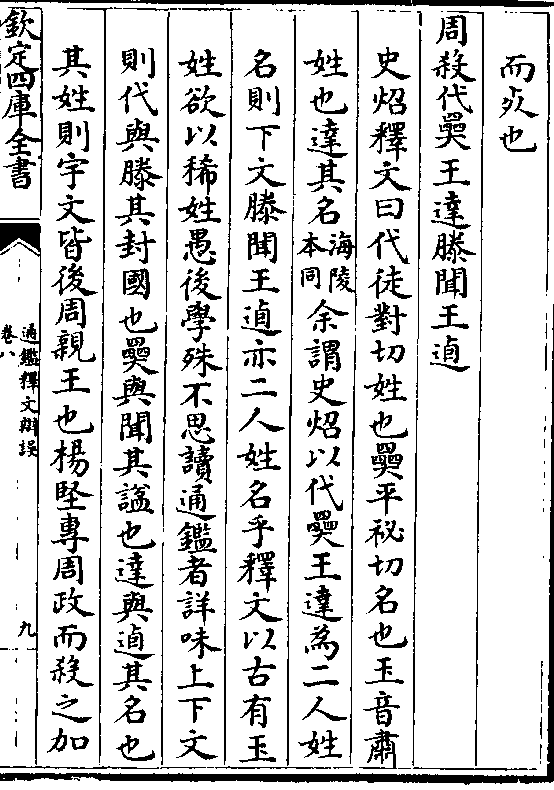 而死也
周殺代奰王達滕聞王逌
史炤釋文曰代徒對切姓也奰平祕切名也玉音肅
姓也達其名海陵本同余謂史炤以代奰王達為二人姓
名則下文滕聞王逌亦二人姓名乎釋文以古有玉
姓欲以稀姓愚後學殊不思讀通鑑者詳味上下文
則代與滕其封國也奰與聞其謚也達與逌其名也
其姓則宇文皆後周親王也楊堅專周政而殺之加
欽定四庫全書
通鑑釋文辯誤
卷八
九